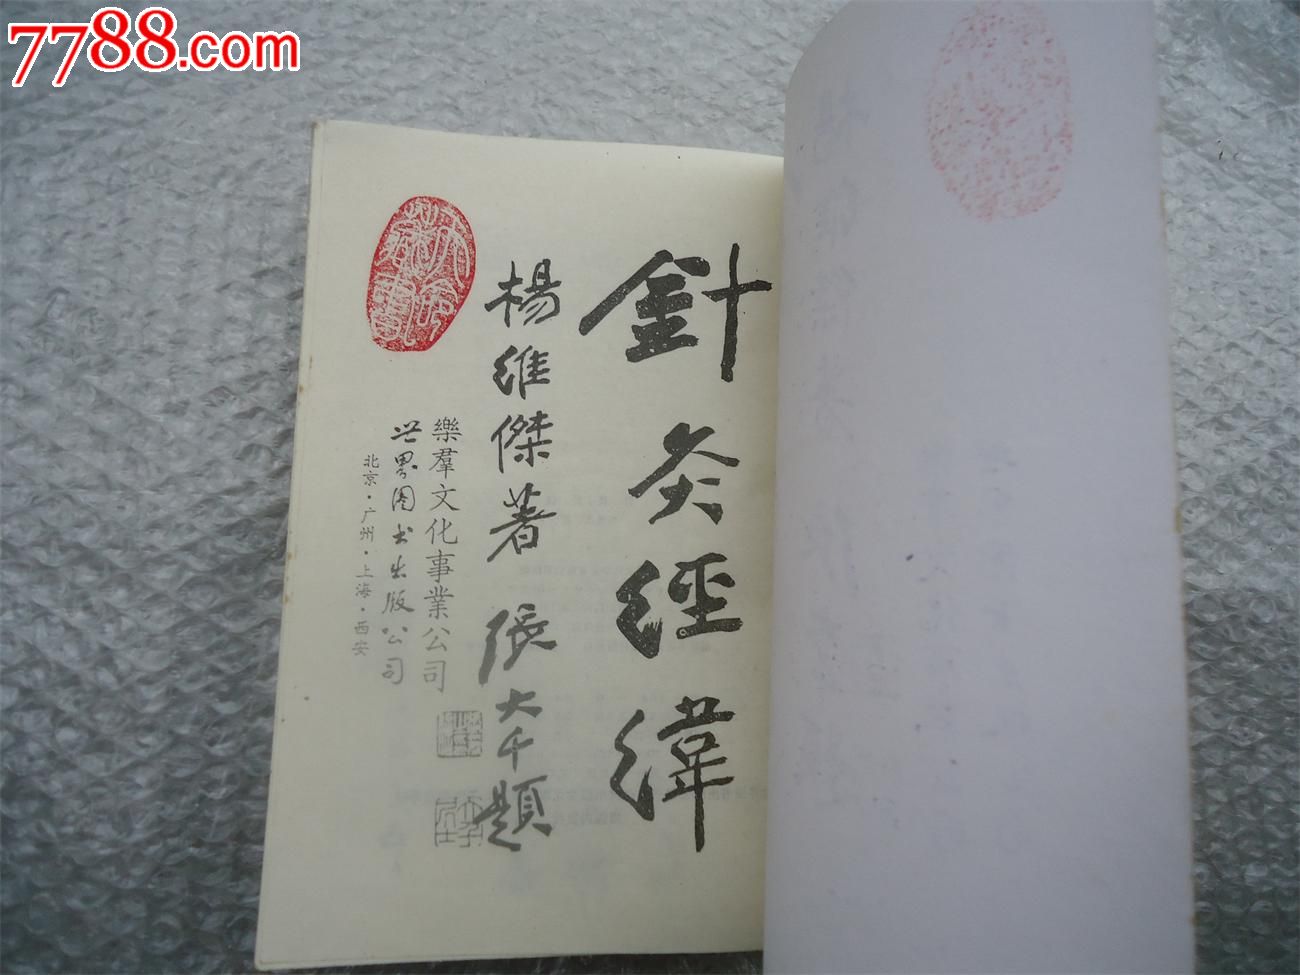 7788.com
針灸經緯
楊維傑著 張大千題
樂羣文化事業公司
世界图书出版公司
北京·广州·上海·西安